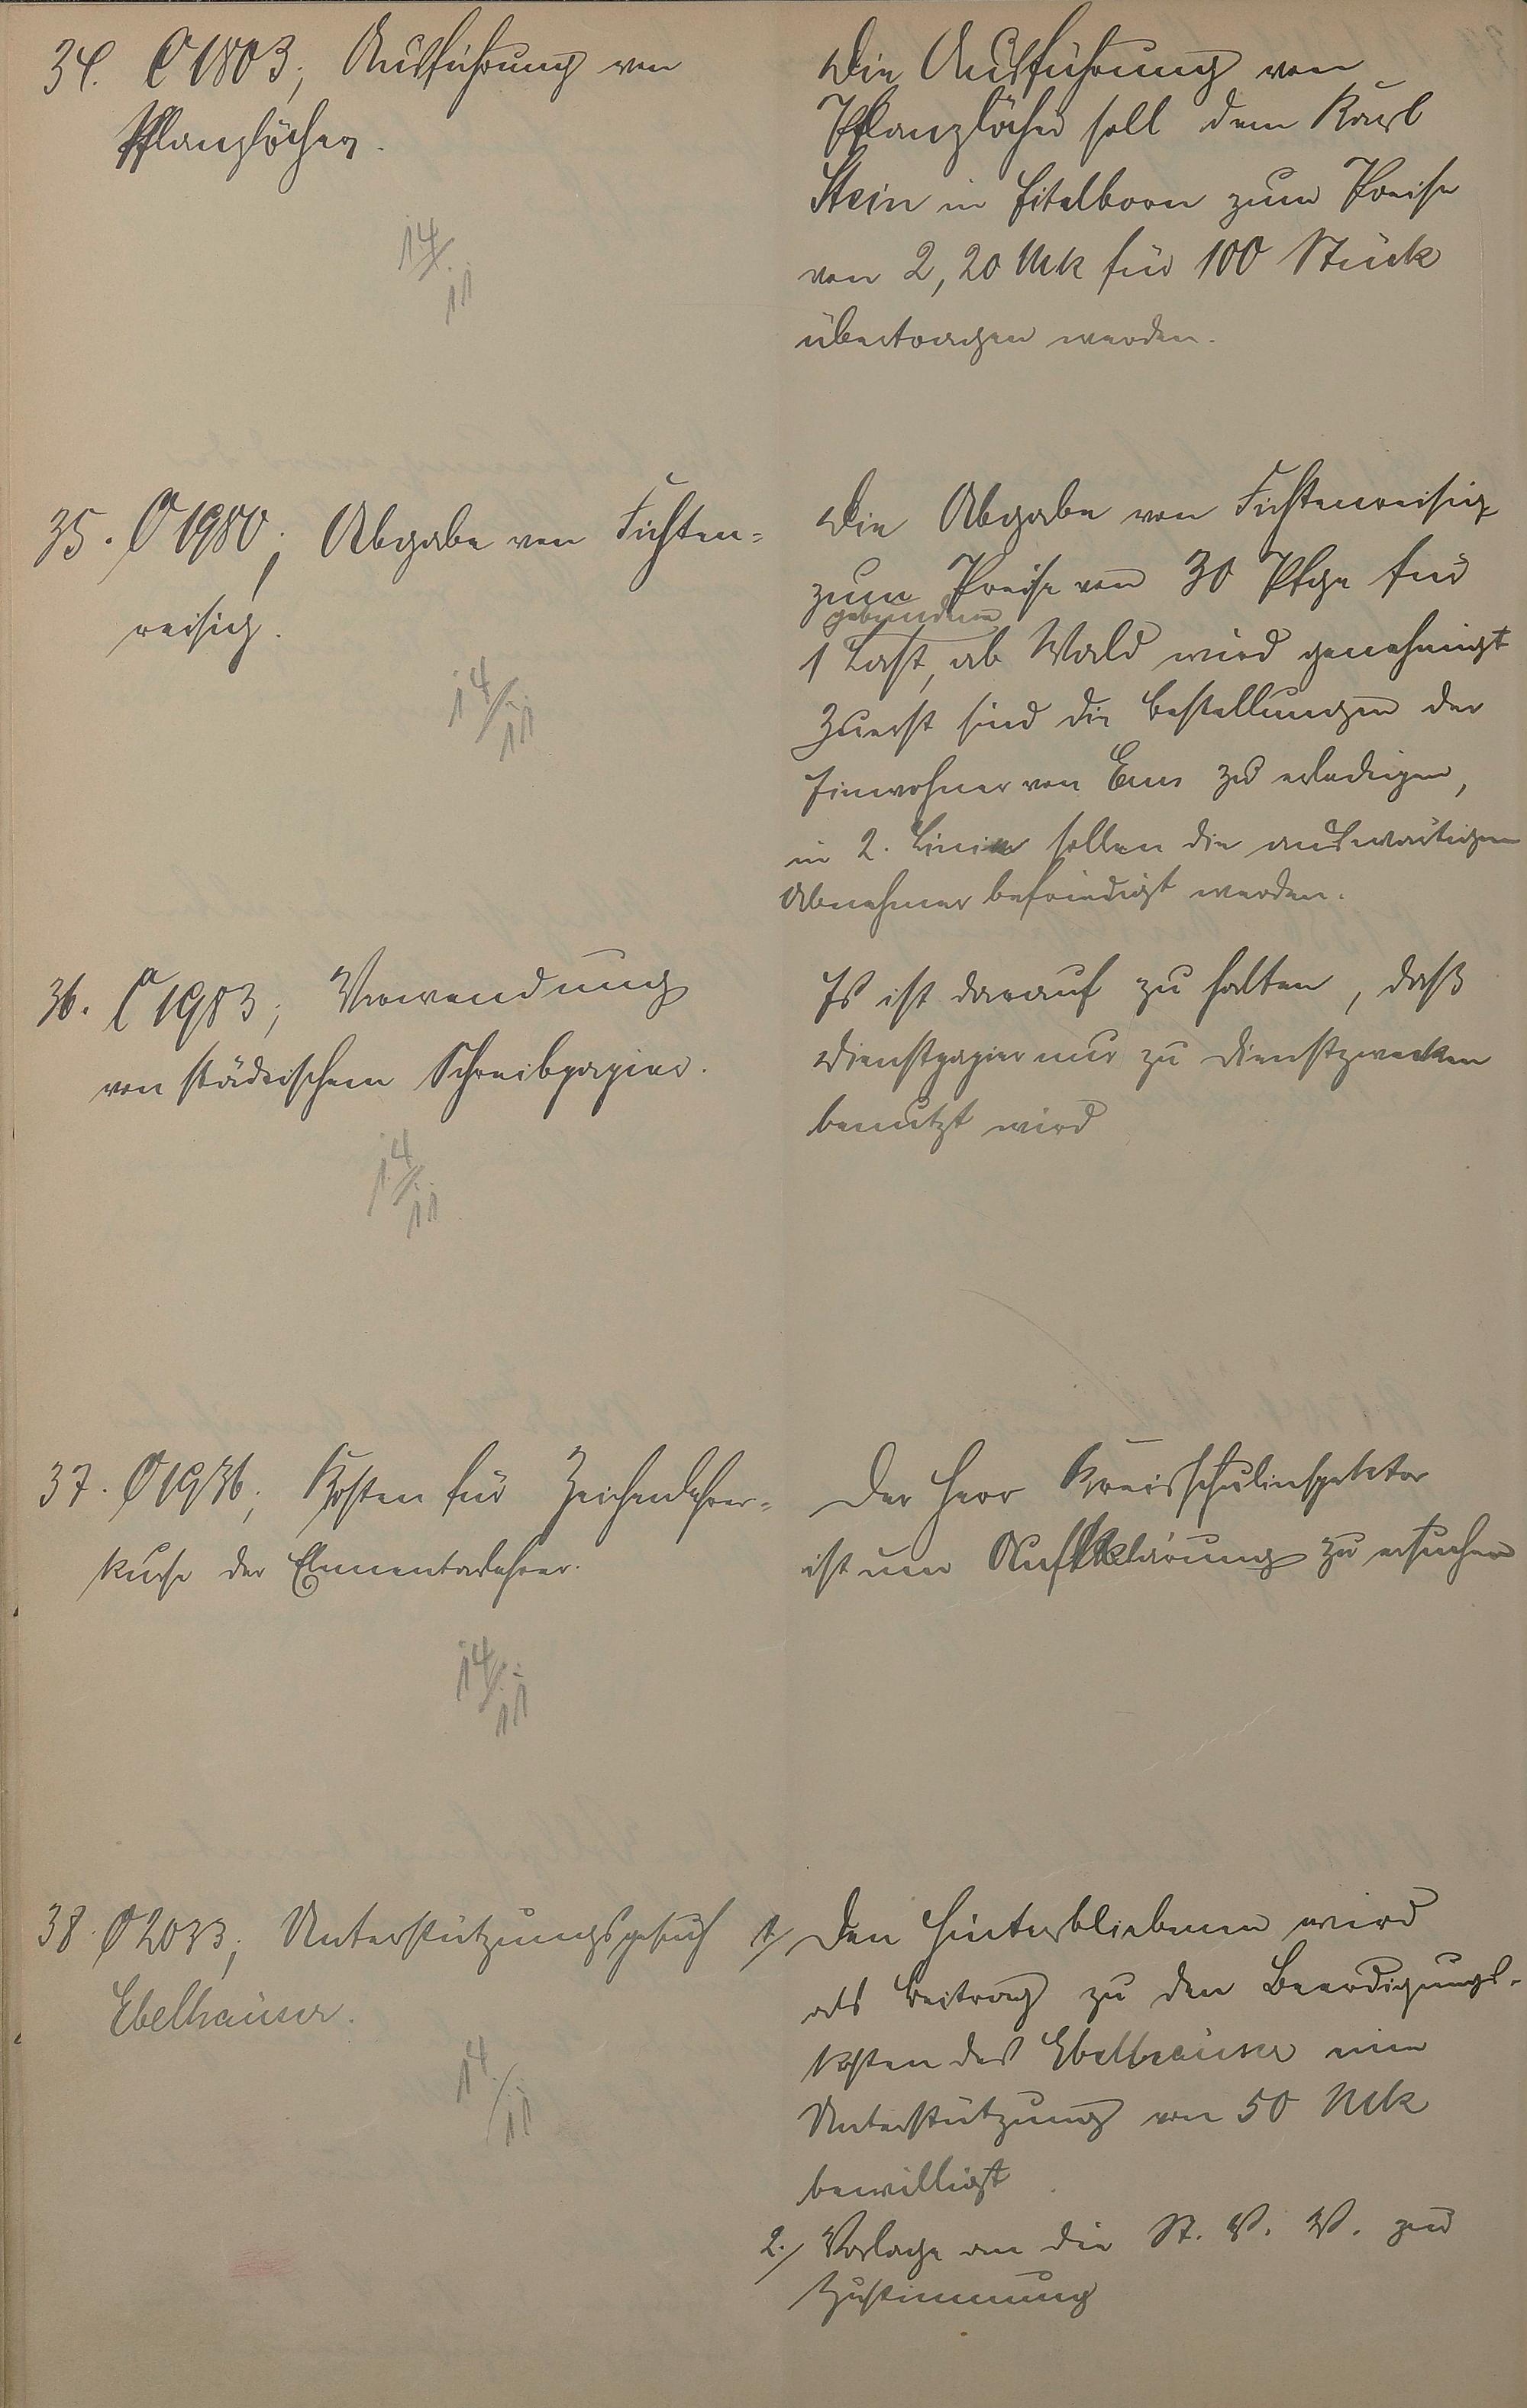 34. C 1803; Ausführung von
Pflanzlöcher.
14/11
Die Ausführung von
Pflanzlöcher soll dem Karl
Stein in Eitelborn zum Preise
von 2,20 Mk für 100 Stück
übertragen werden.
35. C 1980; Abgabe von Fichten=
reisig.
14/11
Die Abgabe von Fichtenreisig
zum Preise von 30 Pfge für
gebundene
1 Last, ab Wald wird genehmigt
Zuerst sind die Bestellungen der
Einwohner von Ems zu erledigen,
in 2. Linie sollen die auswärtigen
Abnehmer befriedigt werden.
36. C 1983; Verwendung
von städtischem Schreibpapier.
14/11
Es ist darauf zu halten, daß
Dienstpapier nur zu Dienstzwecken
benutzt wird
37. C 1936; Kosten für Zeichenlehrer=
kurse der Elementarlehrer.
14/11
Der Herr Kreisschulinspektor
ist um Aufklärung zu ersuchen
38. C 2033; Unterstützungsgesuch
Ebelhäuser.
14/11
1./ Den Hinterbliebenen wird
als Beitrag zu den Beerdigungs-
kosten des Ebelhäuser eine
Unterstützung von 50 Mk
bewilligt.
2./ Vorlage an die St. V. V. zur
Zustimmung